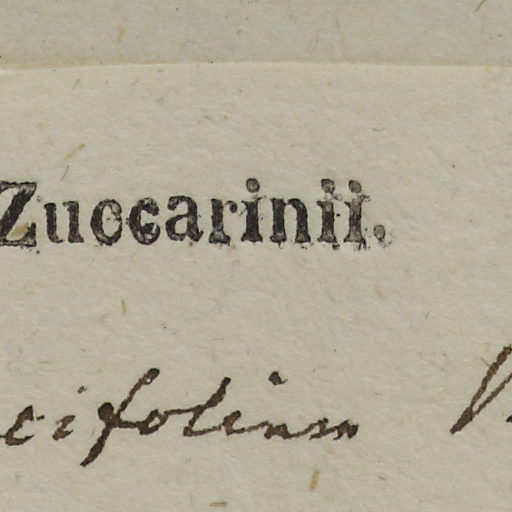 Zuccarinii.
cifolium